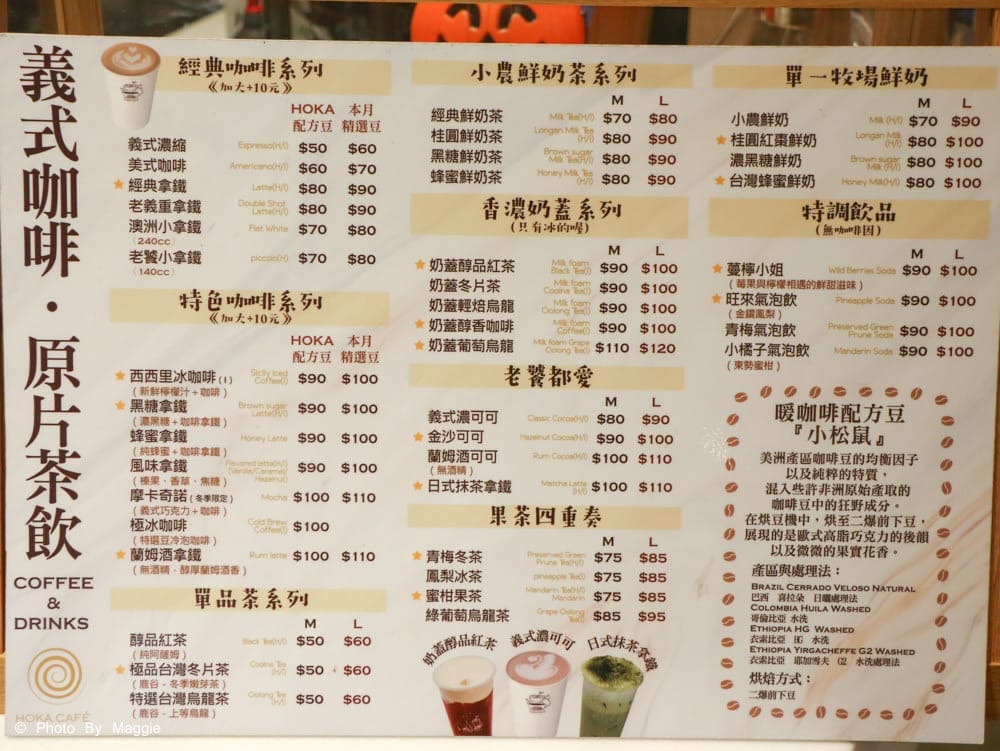 義式咖啡・原片茶飲
COFFEE
&
DRINKS
HOKA CAFÉ
© Photo By Maggie
經典咖啡系列
《加大+10元》
HOKA 本月
配方豆 精選豆
義式濃縮 Espresso(H/I) $50 $60
美式咖啡 Americano(H/I) $60 $70
經典拿鐵 Latte(H/I) $80 $90
老義重拿鐵 Double Shot Latte(H/I) $80 $90
澳洲小拿鐵 Flat White $70 $80
(240cc)
老饕小拿鐵 piccolo(H) $70 $80
(140cc)
特色咖啡系列
《加大+10元》
HOKA 本月
配方豆 精選豆
西西里冰咖啡(I) Sicily Iced Coffee(I) $90 $100
(新鮮檸檬汁+咖啡)
黑糖拿鐵 Brown sugar Latte(H/I) $90 $100
(濃黑糖+咖啡拿鐵)
蜂蜜拿鐵 Honey Latte $90 $100
(純蜂蜜+咖啡拿鐵)
風味拿鐵 Flavored latte(H/I) (Vanilla/Caramel/Hazelnut) $90 $100
(榛果、香草、焦糖)
摩卡奇諾(冬季限定) Mocha $100 $110
(義式巧克力+咖啡)
極冰咖啡 Cold Brew Coffee(I) $100
(特選豆冷泡咖啡)
蘭姆酒拿鐵 Rum latte $100 $110
(無酒精．醇厚蘭姆酒香)
單品茶系列
M L
醇品紅茶 Black Tea(H/I) $50 $60
(純阿薩姆)
極品台灣冬片茶 Coolna Tea (H/I) $50 $60
(鹿谷-冬季嫩芽茶)
特選台灣烏龍茶 Oolong Tea (H/I) $50 $60
(鹿谷-上等烏龍)
小農鮮奶茶系列
M L
經典鮮奶茶 Milk Tea(H/I) $70 $80
桂圓鮮奶茶 Longan Milk Tea (H/I) $80 $90
黑糖鮮奶茶 Brown sugar Milk Tea(H/I) $80 $90
蜂蜜鮮奶茶 Honey Milk Tea (H/I) $80 $90
香濃奶蓋系列
(只有冰的喔)
M L
奶蓋醇品紅茶 Milk foam Black Tea(I) $90 $100
奶蓋冬片茶 Milk foam Coolna Tea(I) $90 $100
奶蓋輕焙烏龍 Milk foam Oolong Tea(I) $90 $100
奶蓋醇香咖啡 Milk foam Coffee(I) $90 $100
奶蓋葡萄烏龍 Milk foam Grape Oolong Tea(I) $110 $120
老饕都愛
M L
義式濃可可 Classic Cocoa(H/I) $80 $90
金沙可可 Hazelnut Cocoa(H/I) $90 $100
蘭姆酒可可 Rum Cocoa(H/I) $100 $110
(無酒精)
日式抹茶拿鐵 Matcha Latte (H/I) $100 $110
果茶四重奏
M L
青梅冬茶 Preserved Green Prune Tea(H/I) $75 $85
鳳梨冰茶 pineapple Tea(I) $75 $85
蜜柑果茶 Mandarin Tea(H/I) Mandarin $75 $85
綠葡萄烏龍茶 Grape Oolong Tea(I) $85 $95
奶蓋醇品紅茶 義式濃可可 日式抹茶拿鐵
單一牧場鮮奶
M L
小農鮮奶 Milk (H/I) $70 $90
桂圓紅棗鮮奶 Longan Milk (H/I) $80 $100
濃黑糖鮮奶 Brown sugar Milk (H/I) $80 $100
台灣蜂蜜鮮奶 Honey Milk(H/I) $80 $100
特調飲品
(無咖啡因)
M L
蔓檸小姐 Wild Berries Soda $90 $100
(莓果與檸檬相遇的鮮甜滋味)
旺來氣泡飲 Pineapple Soda $90 $100
(金鑽鳳梨)
青梅氣泡飲 Preserved Green Prune Soda $90 $100
小橘子氣泡飲 Mandarin Soda $90 $100
(東勢蜜柑)
暖咖啡配方豆
『小松鼠』
美洲產區咖啡豆的均衡因子
以及純粹的特質，
混入些許非洲原始產取的
咖啡豆中的狂野成分。
在烘豆機中，烘至二爆前下豆，
展現的是歐式高脂巧克力的後韻
以及微微的果實花香。
產區與處理法：
BRAZIL CERRADO VELOSO NATURAL
巴西 喜拉朵 日曬處理法
COLOMBIA HUILA WASHED
哥倫比亞 水洗
ETHIOPIA HG WASHED
衣索比亞 HG 水洗
ETHIOPIA YIRGACHEFFE G2 WASHED
衣索比亞 耶加雪夫 G2 水洗處理法
烘焙方式：
二爆前下豆